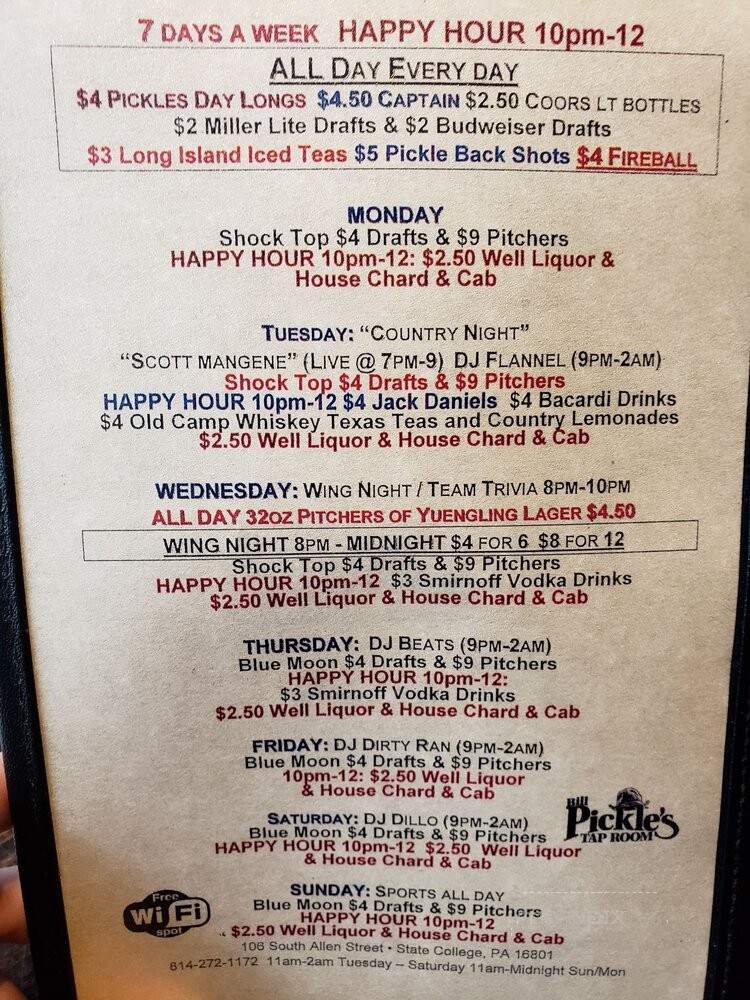 7 DAYS A WEEK HAPPY HOUR 10pm-12
ALL DAY EVERY DAY
$4 PICKLES DAY LONGS $4.50 CAPTAIN $2.50 COORS LT BOTTLES
$2 Miller Lite Drafts & $2 Budweiser Drafts
$3 Long Island Iced Teas $5 Pickle Back Shots $4 FIREBALL
MONDAY
Shock Top $4 Drafts & $9 Pitchers
HAPPY HOUR 10pm-12: $2.50 Well Liquor &
House Chard & Cab
TUESDAY: "COUNTRY NIGHT"
"SCOTT MANGENE" (LIVE @ 7PM-9) DJ FLANNEL (9PM-2AM)
Shock Top $4 Drafts & $9 Pitchers
HAPPY HOUR 10pm-12 $4 Jack Daniels $4 Bacardi Drinks
$4 Old Camp Whiskey Texas Teas and Country Lemonades
$2.50 Well Liquor & House Chard & Cab
WEDNESDAY: WING NIGHT / TEAM TRIVIA 8PM-10PM
ALL DAY 32OZ PITCHERS OF YUENGLING LAGER $4.50
WING NIGHT 8PM - MIDNIGHT $4 FOR 6 $8 FOR 12
Shock Top $4 Drafts & $9 Pitchers
HAPPY HOUR 10pm-12 $3 Smirnoff Vodka Drinks
$2.50 Well Liquor & House Chard & Cab
THURSDAY: DJ BEATS (9PM-2AM)
Blue Moon $4 Drafts & $9 Pitchers
HAPPY HOUR 10pm-12:
$3 Smirnoff Vodka Drinks
$2.50 Well Liquor & House Chard & Cab
FRIDAY: DJ DIRTY RAN (9PM-2AM)
Blue Moon $4 Drafts & $9 Pitchers
10pm-12: $2.50 Well Liquor
& House Chard & Cab
SATURDAY: DJ DILLO (9PM-2AM)
Blue Moon $4 Drafts & $9 Pitchers
HAPPY HOUR 10pm-12 $2.50 Well Liquor
& House Chard & Cab
Bill
Pickle's
TAP ROOM
SUNDAY: SPORTS ALL DAY
Blue Moon $4 Drafts & $9 Pitchers
HAPPY HOUR 10pm-12
$2.50 Well Liquor & House Chard & Cab
Free
Wi Fi
spot
106 South Allen Street • State College, PA 16801
814-272-1172 11am-2am Tuesday – Saturday 11am-Midnight Sun/Mon